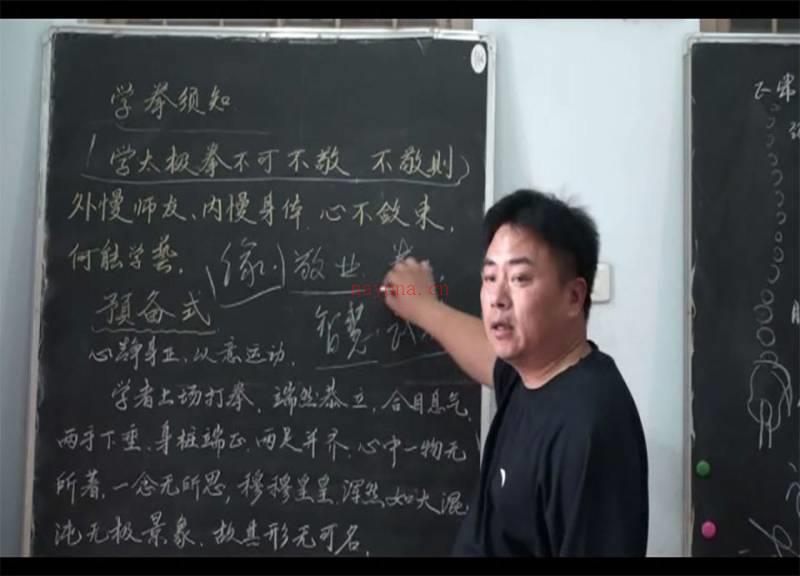 学拳须知
学太极拳不可不敬,不敬则
外慢师友、内慢身体.心不敛束,
何能学艺.
(缘)敬业
智慧
预备式
心静身正,以意运动.
学者上场打拳,端然恭立,合目息气,
两手下垂,身桩端正,两足并齐,心中一物无
所著,一念无所思,穆穆皇皇,浑然如大混
沌无极景象,故其形无可名.
nayona.cn